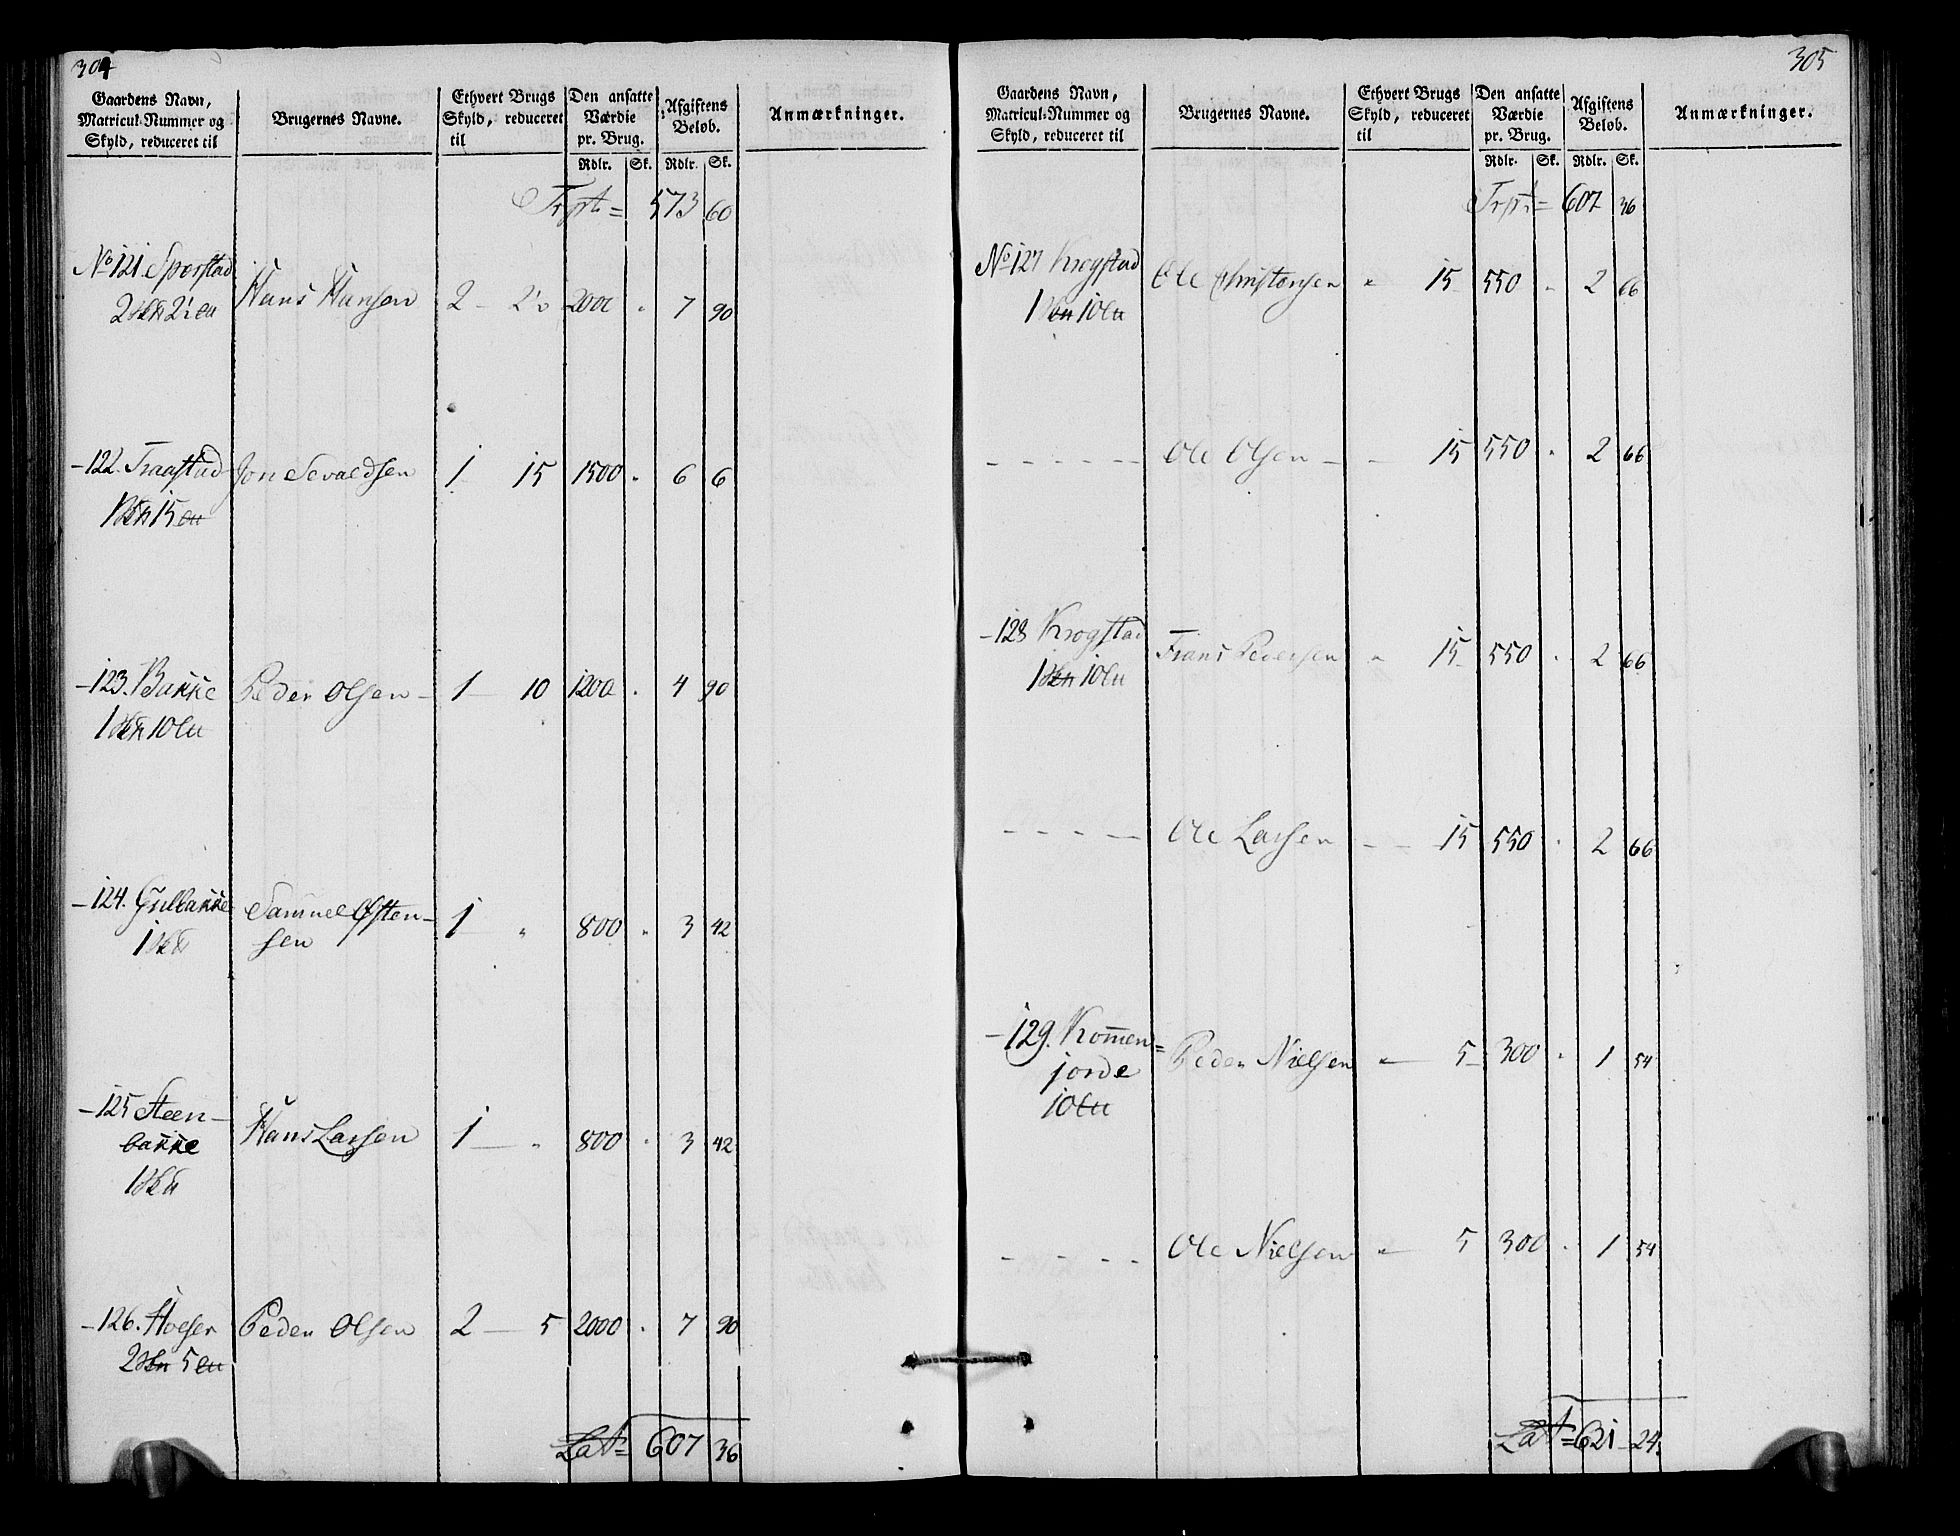 304
Gaardens Navn, Matricul-Nummer og Skyld, reduceret til
Brugernes Navne.
Ethvert Brugs Skyld, reduceret til
Den ansatte Værdie pr. Brug.
Afgiftens Beløb.
Anmærkninger.
Rdlr. Sk. Rdlr. Sk.
Trpt = 573 60
No 121. Sporstad Hans Hansen 2 - 2½ 2000 " 7 90
- 122. Traastad Jon Sevaldsen 1 15 1500 " 6 6
- 123. Bakke Peder Olsen - 1 - 10 1200 " 4 90
- 124. Gulbakke Samuel Østen-
sen 1 - " 800 " 3 42
- 125 Steen-
bakke Hans Larsen 1 - " 800 " 3 42
- 126. Peder Olsen 2 - 5 2000 " 7 90
Lat = 607 36
305
Gaardens Navn, Matricul-Nummer og Skyld, reduceret til
Brugernes Navne.
Ethvert Brugs Skyld, reduceret til
Den ansatte Værdie pr. Brug.
Afgiftens Beløb.
Anmærkninger.
Rdlr. Sk. Rdlr. Sk.
Trpt = 607 36
No 127 Krogstad Ole Christensen " 15 550 " 2 66
- - - - - Ole Olsen - - 15 550 " 2 66
- 128 Krogstad Frans Pedersen " 15 550 " 2 66
- - - - - Ole Larsen - - 15 550 " 2 66
- 129. Kom̄en=
jorde Peder Nielsen " - 5 300 " 1 54
- - - - Ole Nielsen " - 5 300 " 1 54
Lat = 621 - 24.